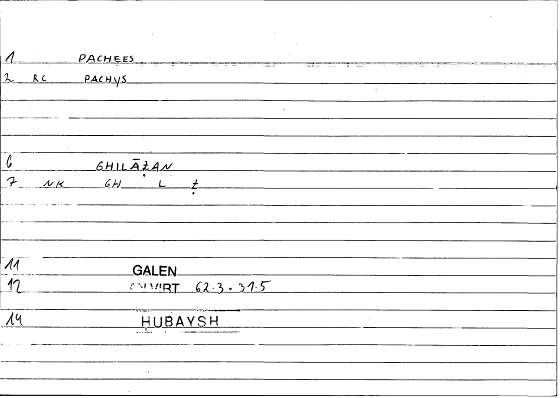 1 PACHEES
2 RC PACHYS
6 GHILĀẒAN
7 NK GH L Ẓ
11 GALEN
12 62.3-37.5
14 ḤUBAYSH